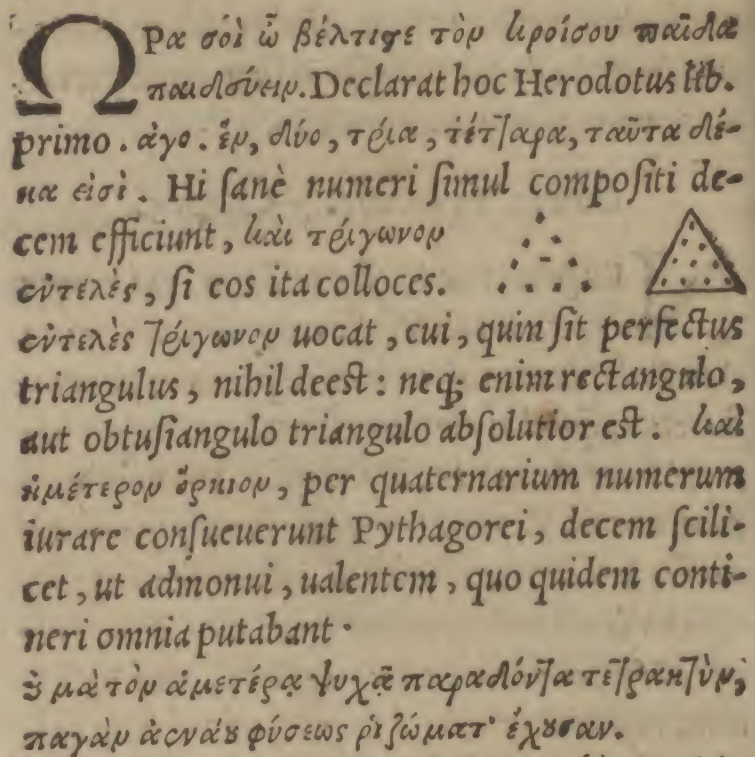 ΩΡα σόι ὦ βέλτιστε τὸν κροίσου παῖδα
παιδσύειν. Declarat hoc Herodotus lib.
primo. ἀγο. ἕν, δύο, τρία, τέτ̔αρα, ταῦτα δέ-
κα εἰσὶ. Hi ſanè numeri ſimul compoſiti de-
cem efficiunt, καὶ τρίγωνον
εὐτελὲς, ſi eos ita colloces.
εὐτελὲς τρίγωνον uocat, cui, quin ſit perfectus
triangulus, nihil deest: neq; enim rectangulo,
aut obtuſiangulo triangulo abſolutior est. καὶ
ἡμέτερον ὅρκιον, per quaternarium numerum
iurare conſueuerunt Pythagorei, decem ſcili-
cet, ut admonui, ualentem, quo quidem conti-
neri omnia putabant.
οὐ μὰ τὸν ἁμετέρᾳ ψυχᾷ παραδόντα τετρακτὺν,
παγὰν ἀενάου φύσεως ῥιζώματ' ἔχουσαν.